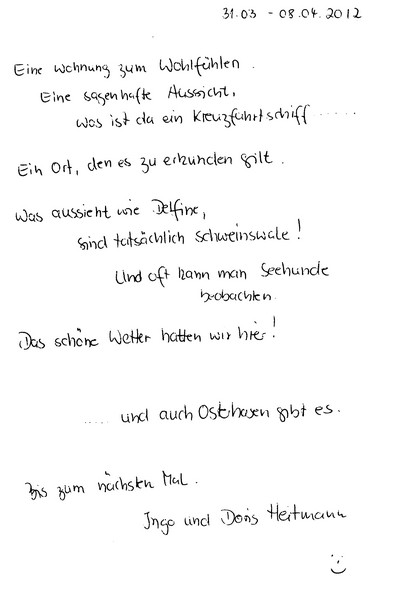 31.03 - 08.04.2012
Eine wohnung zum Wohlfühlen.
Eine sagenhafte Aussicht,
was ist da ein Kreuzfahrtschiff ......
Ein Ort, den es zu erkunden gilt.
Was aussieht wie Delfine,
sind tatsächlich schweinswale!
Und oft kann man Seehunde
beobachten.
Das schöne Wetter hatten wir hier!
..... und auch Osthasen gibt es.
Bis zum nächsten Mal.
Ingo und Doris Heitmann